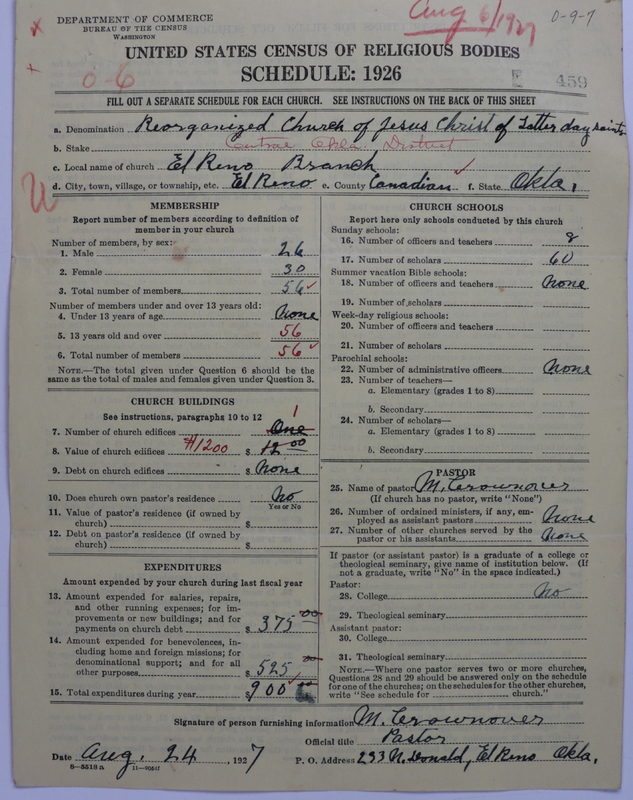 DEPARTMENT OF COMMERCE
BUREAU OF THE CENSUS
WASHINGTON
Aug 6/1927
0-9-7
UNITED STATES CENSUS OF RELIGIOUS BODIES
SCHEDULE: 1926
0-6
E 459
FILL OUT A SEPARATE SCHEDULE FOR EACH CHURCH. SEE INSTRUCTIONS ON THE BACK OF THIS SHEET
a. Denomination Reorganized Church of Jesus Christ of Latter day saints
b. Stake Central Okla District
c. Local name of church El Reno Branch
d. City, town, village, or township, etc. El Reno e. County Canadian f. State Okla.
MEMBERSHIP
Report number of members according to definition of
member in your church
Number of members, by sex:
1. Male 26
2. Female 30
3. Total number of members 56
Number of members under and over 13 years old:
4. Under 13 years of age None
5. 13 years old and over 56
6. Total number of members 56
NOTE.—The total given under Question 6 should be
same as the total of males and females given under Question 3.
CHURCH BUILDINGS
See instructions, paragraphs 10 to 12
1
7. Number of church edifices One
8. Value of church edifices #1200 $ 12 00
9. Debt on church edifices $ None
10. Does church own pastor's residence No
Yes or No
11. Value of pastor's residence (if owned by
church) $
12. Debt on pastor's residence (if owned by
church) $
EXPENDITURES
Amount expended by your church during last fiscal year
13. Amount expended for salaries, repairs,
and other running expenses; for im-
provements or new buildings; and for
payments on church debt $ 375 00
14. Amount expended for benevolences, in-
cluding home and foreign missions; for
denominational support; and for all
other purposes $ 525 00
15. Total expenditures during year $ 900
CHURCH SCHOOLS
Report here only schools conducted by this church
Sunday schools:
16. Number of officers and teachers 8
17. Number of scholars 60
Summer vacation Bible schools:
18. Number of officers and teachers None
19. Number of scholars
Week-day religious schools:
20. Number of officers and teachers
21. Number of scholars
Parochial schools:
22. Number of administrative officers None
23. Number of teachers—
a. Elementary (grades 1 to 8)
b. Secondary
24. Number of scholars—
a. Elementary (grades 1 to 8)
b. Secondary
PASTOR
25. Name of pastor M. Crownover
(If church has no pastor, write "None")
26. Number of ordained ministers, if any, em-
ployed as assistant pastors None
27. Number of other churches served by the
pastor or his assistants None
If pastor (or assistant pastor) is a graduate of a college or
theological seminary, give name of institution below. (If
not a graduate, write "No" in the space indicated.)
Pastor:
28. College No
29. Theological seminary
Assistant pastor:
30. College
31. Theological seminary
NOTE.—Where one pastor serves two or more churches,
Questions 28 and 29 should be answered only on the schedule
for one of the churches; on the schedules for the other churches,
write "See schedule for church."
Signature of person furnishing information M. Crownover
Official title Pastor
Date Aug. 24, 1927 P. O. Address 233 N. Donald, El Reno Okla.
8—5518 a